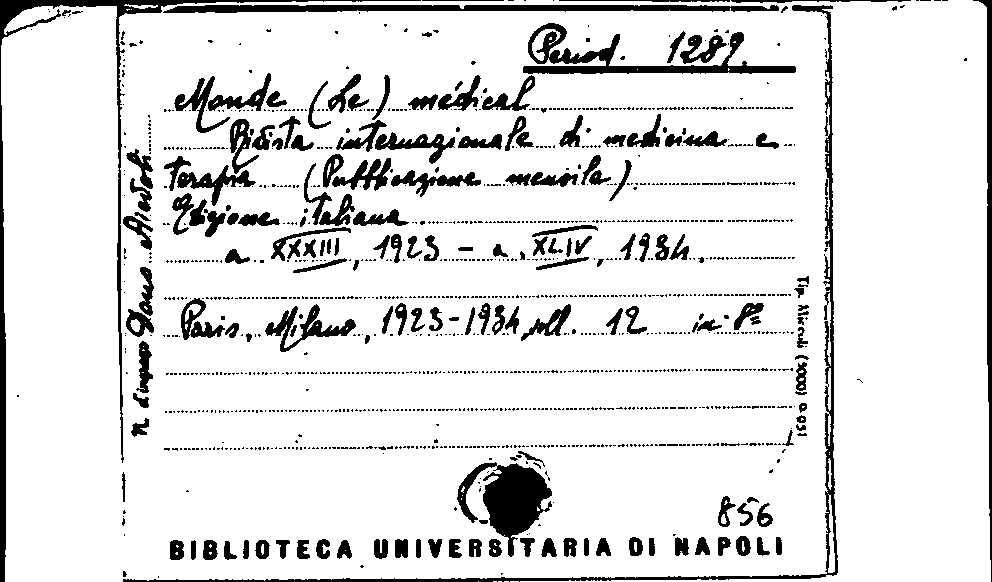 Period. 1289.
Monde (Le) médical.
Rivista internazionale di medicina e
terapia (Pubblicazione mensile).
Edizione italiana.
a. XXXIII, 1923 - a. XLIV, 1934.
Paris, Milano, 1923-1934, voll. 12 in-8º
N. d'ingresso Dono
Tip.
856
BIBLIOTECA UNIVERSITARIA DI NAPOLI